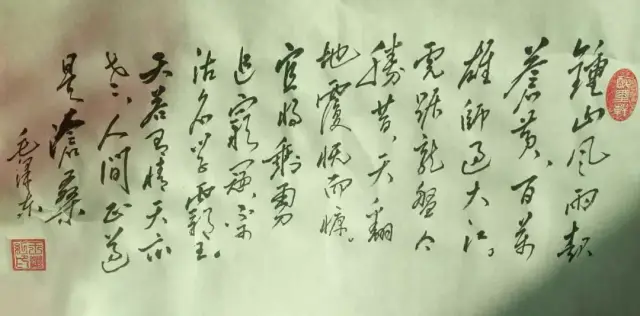 鍾山风雨起
蒼黄,百万
雄師过大江。
虎踞龍盤今
勝昔,天翻
地覆慨而慷。
宜将剩勇
追窮寇,不可
沽名学霸王。
天若有情天亦
老,人间正道
是滄桑
毛泽东